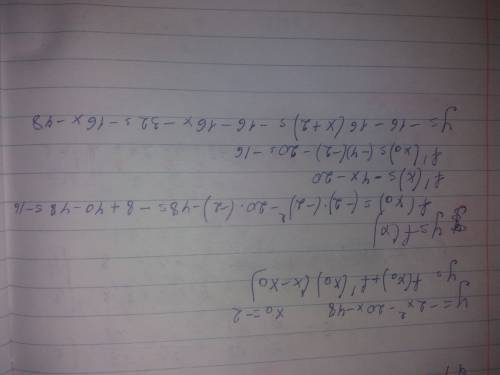 y = -2x² - 20x - 48    x₀ = -2
y = f(x₀) + f'(x₀)(x - x₀)
y = f(x)
f(x₀) = (-2)·(-2)² - 20·(-2) - 48 = -8 + 40 - 48 = -16
f'(x) = -4x - 20
f'(x₀) = (-4)(-2) - 20 = -16
y = -16 - 16(x + 2) = -16 - 16x - 32 = -16x - 48